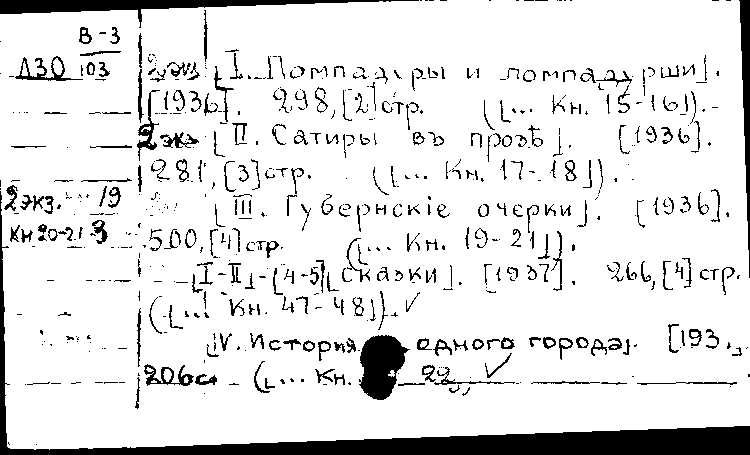 В-3
Л30 103
2 экз. ⌊I. Помпадуры и помпадурши⌋.
[1936]. 298, [2] стр. (⌊... Кн. 15-16⌋).-
2 экз ⌊II. Сатиры въ прозѣ⌋. [1936].
281, [3] стр. (⌊... Кн. 17-18⌋).
2 экз. 19 ⌊III. Губернскіе очерки⌋. [1936].
Кн 20-21 3 500, [4] стр. (⌊... Кн. 19-21⌋).
⌊I-II⌋-[4-5] ⌊Сказки⌋. [1937]. 266, [4] стр.
(⌊... Кн. 47-48⌋). ✓
⌊IV. История одного города⌋. [193.
206 с. (⌊... Кн. 22, ✓